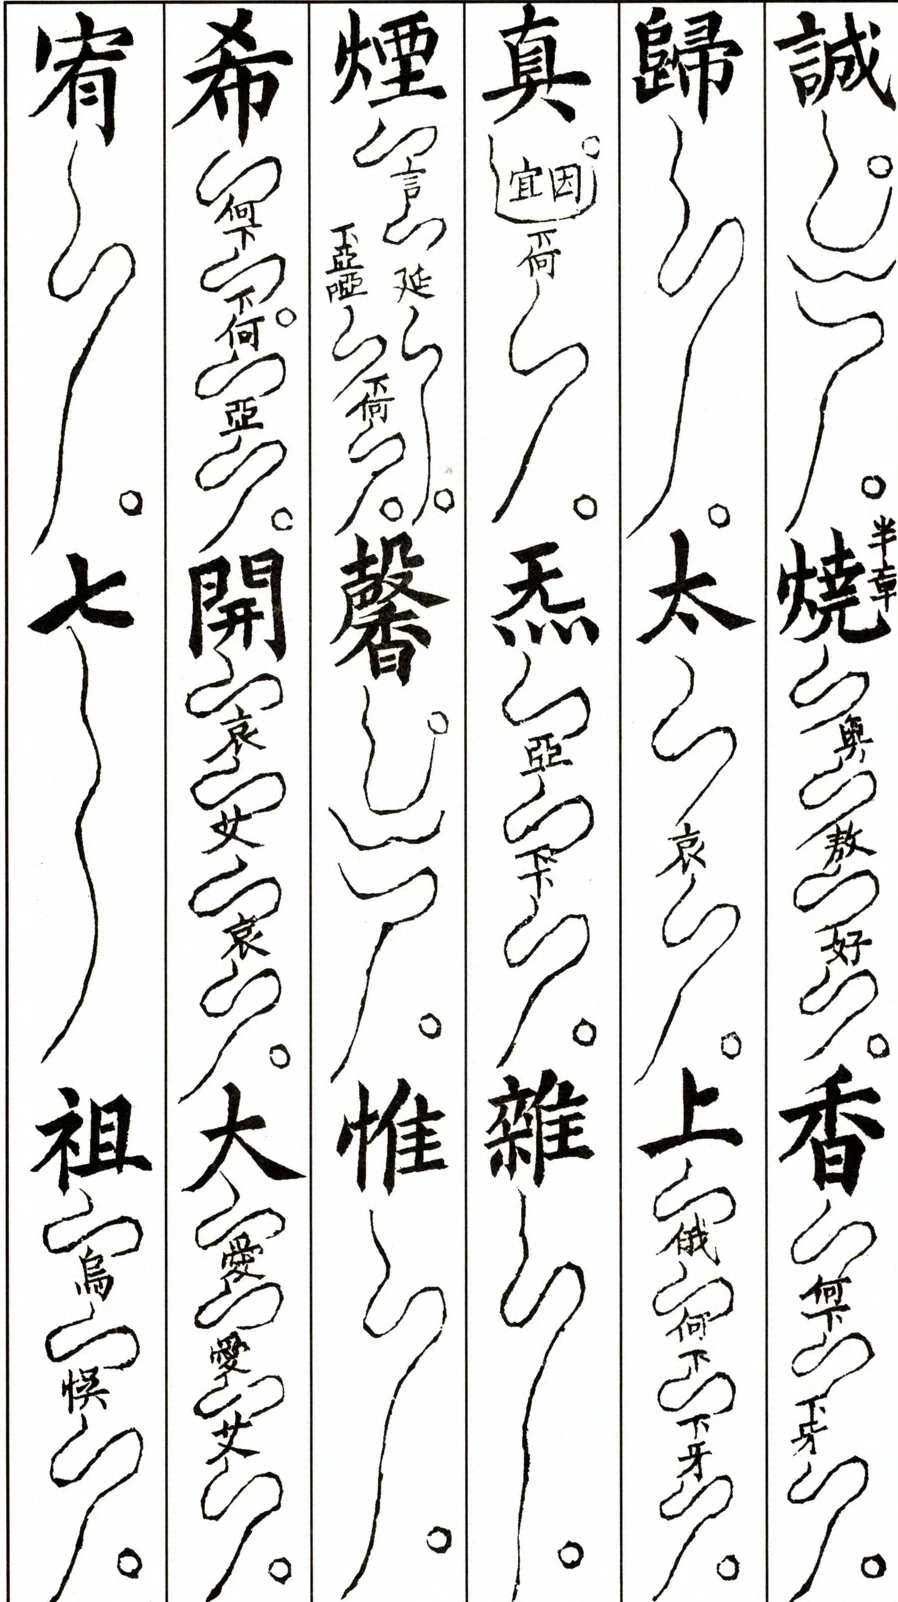 誠 燒 半章 奧 敖 好 香 何下 下牙
歸 太 哀 上 俄 何下 下牙
真 因宜 下何 炁 亞 下下 雜
煙 言 延 下亞啞 下何 馨 惟
希 何下 下何 亞 開 哀 艾 哀 大 愛 愛 艾
宥 七 祖 烏 悞